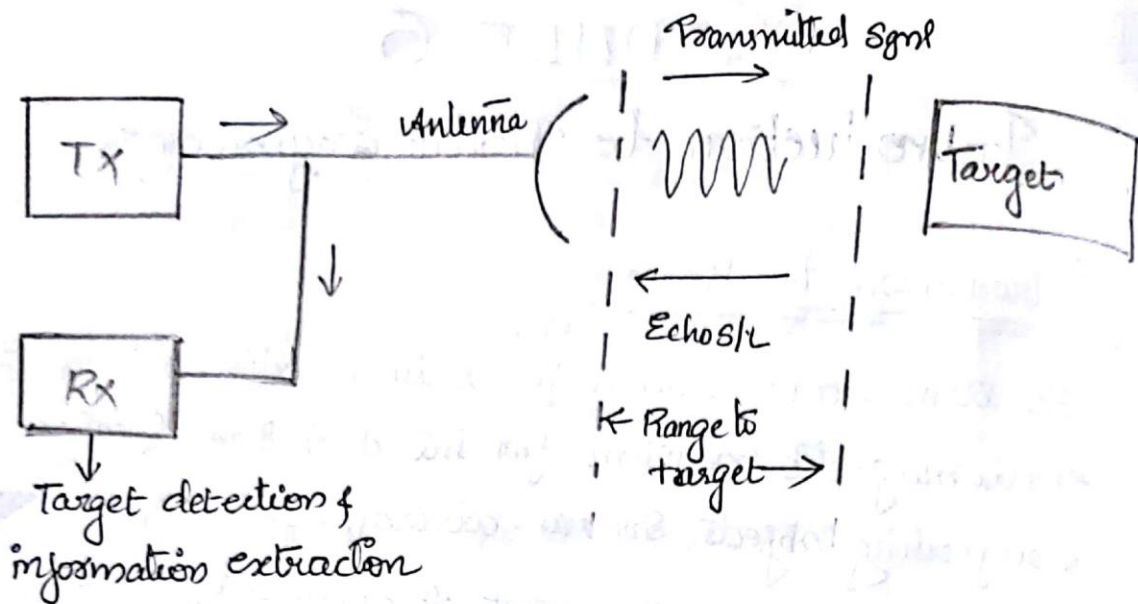 Transmitted Sgnl
Antenna
TX
Target
Echo S/L
Rx
Range to
target
Target detection &
information extraction